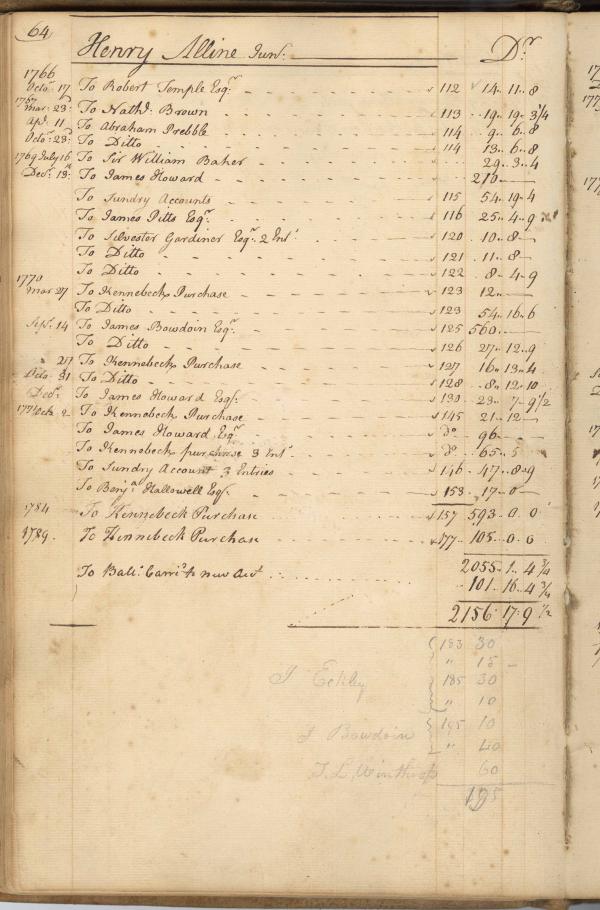 64
Henry Alline Junr. Dr
1766
Octor. 17 To Robert Temple Esqr. 112 14 11 8
1767
Mar. 23 To Nathl. Brown 113 19 19 3 1/4
Apl. 11 To Abraham Prebble 114 9 6 8
Octor. 23 To Ditto 114 13 6 8
1769 July 16 To Sir William Baker 29 3 4
Decr. 13 To James Howard 216
To Sundry Accounts 115 54 19 4
To James Pitts Esqr. 116 25 4 9
To Silvester Gardiner Esqr. 2 Ent. 120 10 8
To Ditto 121 11 8
To Ditto 122 8 4 9
1770
Mar 27 To Kennebeck Purchase 123 12
To Ditto 123 54 16 6
Sepr. 14 To James Bowdoin Esqr. 125 560
To Ditto 126 27 12 9
27 To Kennebeck Purchase 127 16 13 4
Octo. 31 To Ditto 128 8 12 10
Decr. To James Howard Esqr. 130 23 7 9 1/2
1771 Octr 2 To Kennebeck Purchase 145 21 12
To James Howard Esqr. do 96
To Kennebeck purchase 3 Ent. do 65 5
To Sundry Account 3 Entries 146 47 8 9
To Benja. Hallowell Esqr. 153 17 0
1784 To Kennebeck Purchase 157 593 0 0
1789 To Kennebeck Purchase 177 105 0 0
2055 1 4 3/4
To Balc. Carrd. to new Acct. 101 16 4 3/4
2156 17 9 1/2
183 30
" 15
J Eckley 185 30
" 10
J Bowdoin 195 10
" 40
T. L. Winthrop 60
195